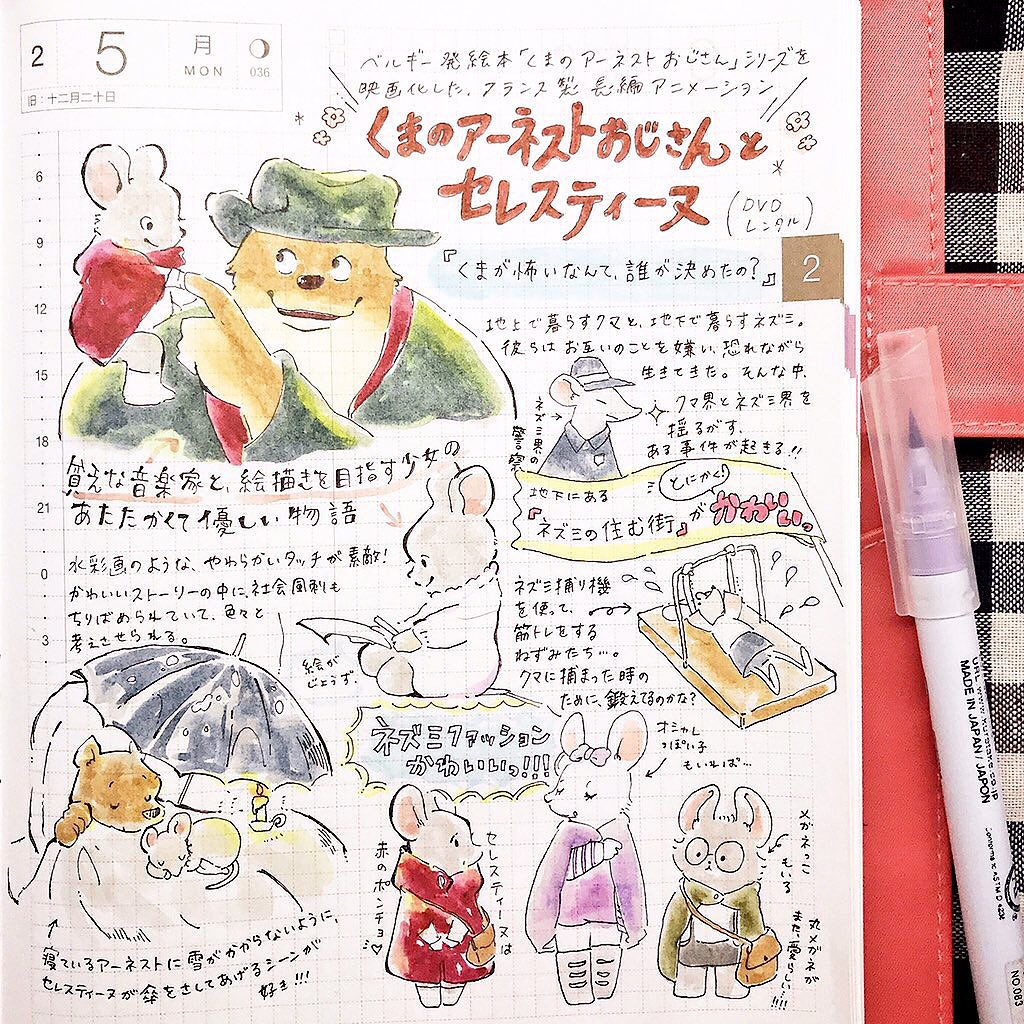 2 5 月
MON 036
旧:十二月二十日
ベルギー発絵本「くまのアーネストおじさん」シリーズを
映画化した、フランス製 長編アニメーション
くまのアーネストおじさんと
セレスティーヌ
(DVD
レンタル)
『くまが怖いなんて、誰が決めたの?』
2
地上で暮らすクマと、地下で暮らすネズミ。
彼らはお互いのことを嫌い、恐れながら
生きてきた。そんな中、
クマ界とネズミ界を
揺るがす、
ある事件が起きる!!
ネズミ界の
警察
6
9
12
15
18
21
0
3
貧乏な音楽家と、絵描きを目指す少女の
あたたかくて優しい物語
地下にある
『ネズミの住む街』が
とにかく!
かわいい。
水彩画のような、やわらかいタッチが素敵!
かわいいストーリーの中に、社会風刺も
ちりばめられていて、色々と
考えさせられる。
絵が
じょうず。
ネズミ捕り機
を使って、
筋トレをする
ねずみたち…。
クマに捕まった時の
ために、鍛えてるのかな?
ネズミファッション
かわいいっ!!!
オシャレ
っぽい子
もいれば…
セレスティーヌは
赤のポンチョ♡
メガネっこ
もいる
丸メガネが
また愛らしい…!!!!
寝ているアーネストに雪がかからないように、
セレスティーヌが傘をさしてあげるシーンが
好き!!!
MADE IN JAPAN/JAPON
NO.083